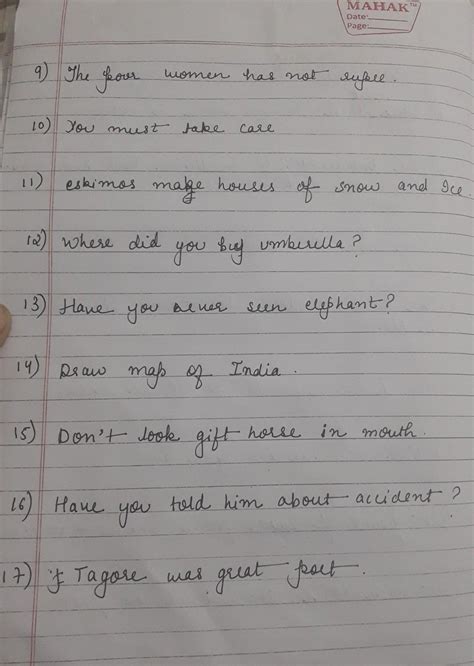 MAHAK™
Date:
Page:
9) The poor women has not rupee.
10) You must take care
11) eskimos make houses of snow and Ice.
12) Where did you buy umberella?
13) Have you never seen elephant?
14) Draw map of India.
15) Don't look gift horse in mouth.
16) Have you told him about accident?
17) Tagore was great poet.